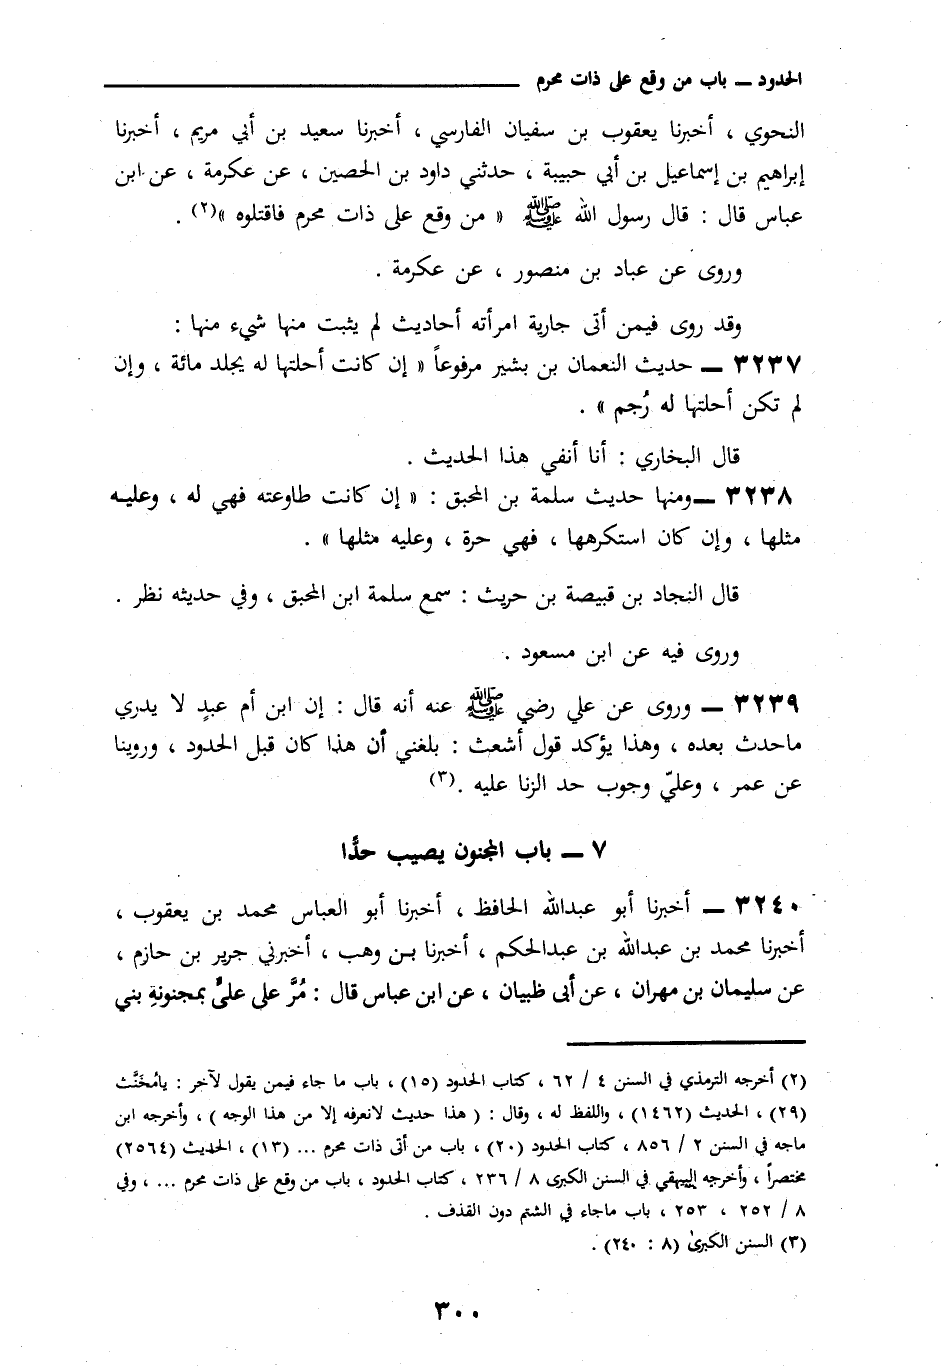 الحدود ــ باب من وقع على ذات محرم
النحوي ، أخبرنا يعقوب بن سفيان الفارسي ، أخبرنا سعيد بن أبي مريم ، أخبرنا
إبراهيم بن إسماعيل بن أبي حبيبة ، حدثني داود بن الحصين ، عن عكرمة ، عن ابن
عباس قال : قال رسول الله ﷺ « من وقع على ذات محرم فاقتلوه »(٢) .
وروى عن عباد بن منصور ، عن عكرمة .
وقد روى فيمن أتى جارية امرأته أحاديث لم يثبت منها شيء منها :
٣٢٣٧ ــ حديث النعمان بن بشير مرفوعاً « إن كانت أحلتها له يجلد مائة ، وإن
لم تكن أحلتها له رُجم » .
قال البخاري : أنا أنفي هذا الحديث .
٣٢٣٨ ــ ومنها حديث سلمة بن المحبق : « إن كانت طاوعته فهي له ، وعليه
مثلها ، وإن كان استكرهها ، فهي حرة ، وعليه مثلها » .
قال النجاد بن قبيصة بن حريث : سمع سلمة ابن المحبق ، وفي حديثه نظر .
وروى فيه عن ابن مسعود .
٣٢٣٩ ــ وروى عن علي رضي ﷺ عنه أنه قال : إن ابن أم عبدٍ لا يدري
ماحدث بعده ، وهذا يؤكد قول أشعث : بلغني أن هذا كان قبل الحدود ، وروينا
عن عمر ، وعليّ وجوب حد الزنا عليه .(٣)
٧ ــ باب المجنون يصيب حدًّا
٣٢٤٠ ــ أخبرنا أبو عبدالله الحافظ ، أخبرنا أبو العباس محمد بن يعقوب ،
أخبرنا محمد بن عبدالله بن عبدالحكم ، أخبرنا بن وهب ، أخبرني جرير بن حازم ،
عن سليمان بن مهران ، عن أبى ظبيان ، عن ابن عباس قال : مُرَّ على علىٍّ بمجنونةِ بني
(٢) أخرجه الترمذي في السنن ٤ / ٦٢ ، كتاب الحدود (١٥) ، باب ما جاء فيمن يقول لآخر : يامُخَنَّث
(٢٩) ، الحديث (١٤٦٢) ، واللفظ له ، وقال : ( هذا حديث لانعرفه إلا من هذا الوجه ) ، وأخرجه ابن
ماجه في السنن ٢ / ٨٥٦ ، كتاب الحدود (٢٠) ، باب من أتى ذات محرم ... (١٣) ، الحديث (٢٥٦٤)
مختصراً ، وأخرجه البيهقي في السنن الكبرى ٨ / ٢٣٦ ، كتاب الحدود ، باب من وقع على ذات محرم ... ، وفي
٨ / ٢٥٢ ، ٢٥٣ ، باب ماجاء في الشتم دون القذف .
(٣) السنن الكبرىٰ (٨ : ٢٤٠) .
٣٠٠